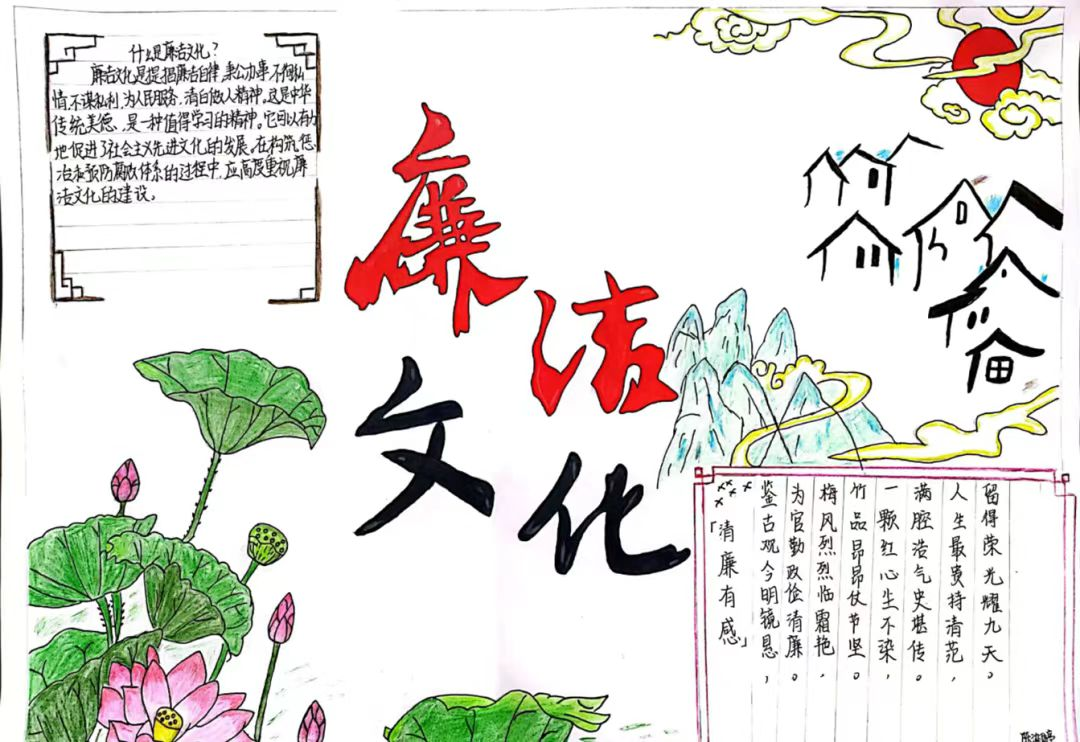 什么是廉洁文化？
廉洁文化是提倡廉洁自律，秉公办事，不徇私
情，不谋私利，为人民服务，清白做人精神。这是中华
传统美德，是一种值得学习的精神。它可以有力
地促进了社会主义先进文化的发展。在构筑惩
治和预防腐败体系的过程中，应高度重视廉
洁文化的建设。
廉洁
文化
「清廉有感」
××××
鉴古观今明镜悬，
为官勤政俭清廉。
梅风烈烈临霜艳，
竹品昂昂仗节坚。
一颗红心生不染，
满腔浩气史堪传。
人生最贵持清范，
留得荣光耀九天。